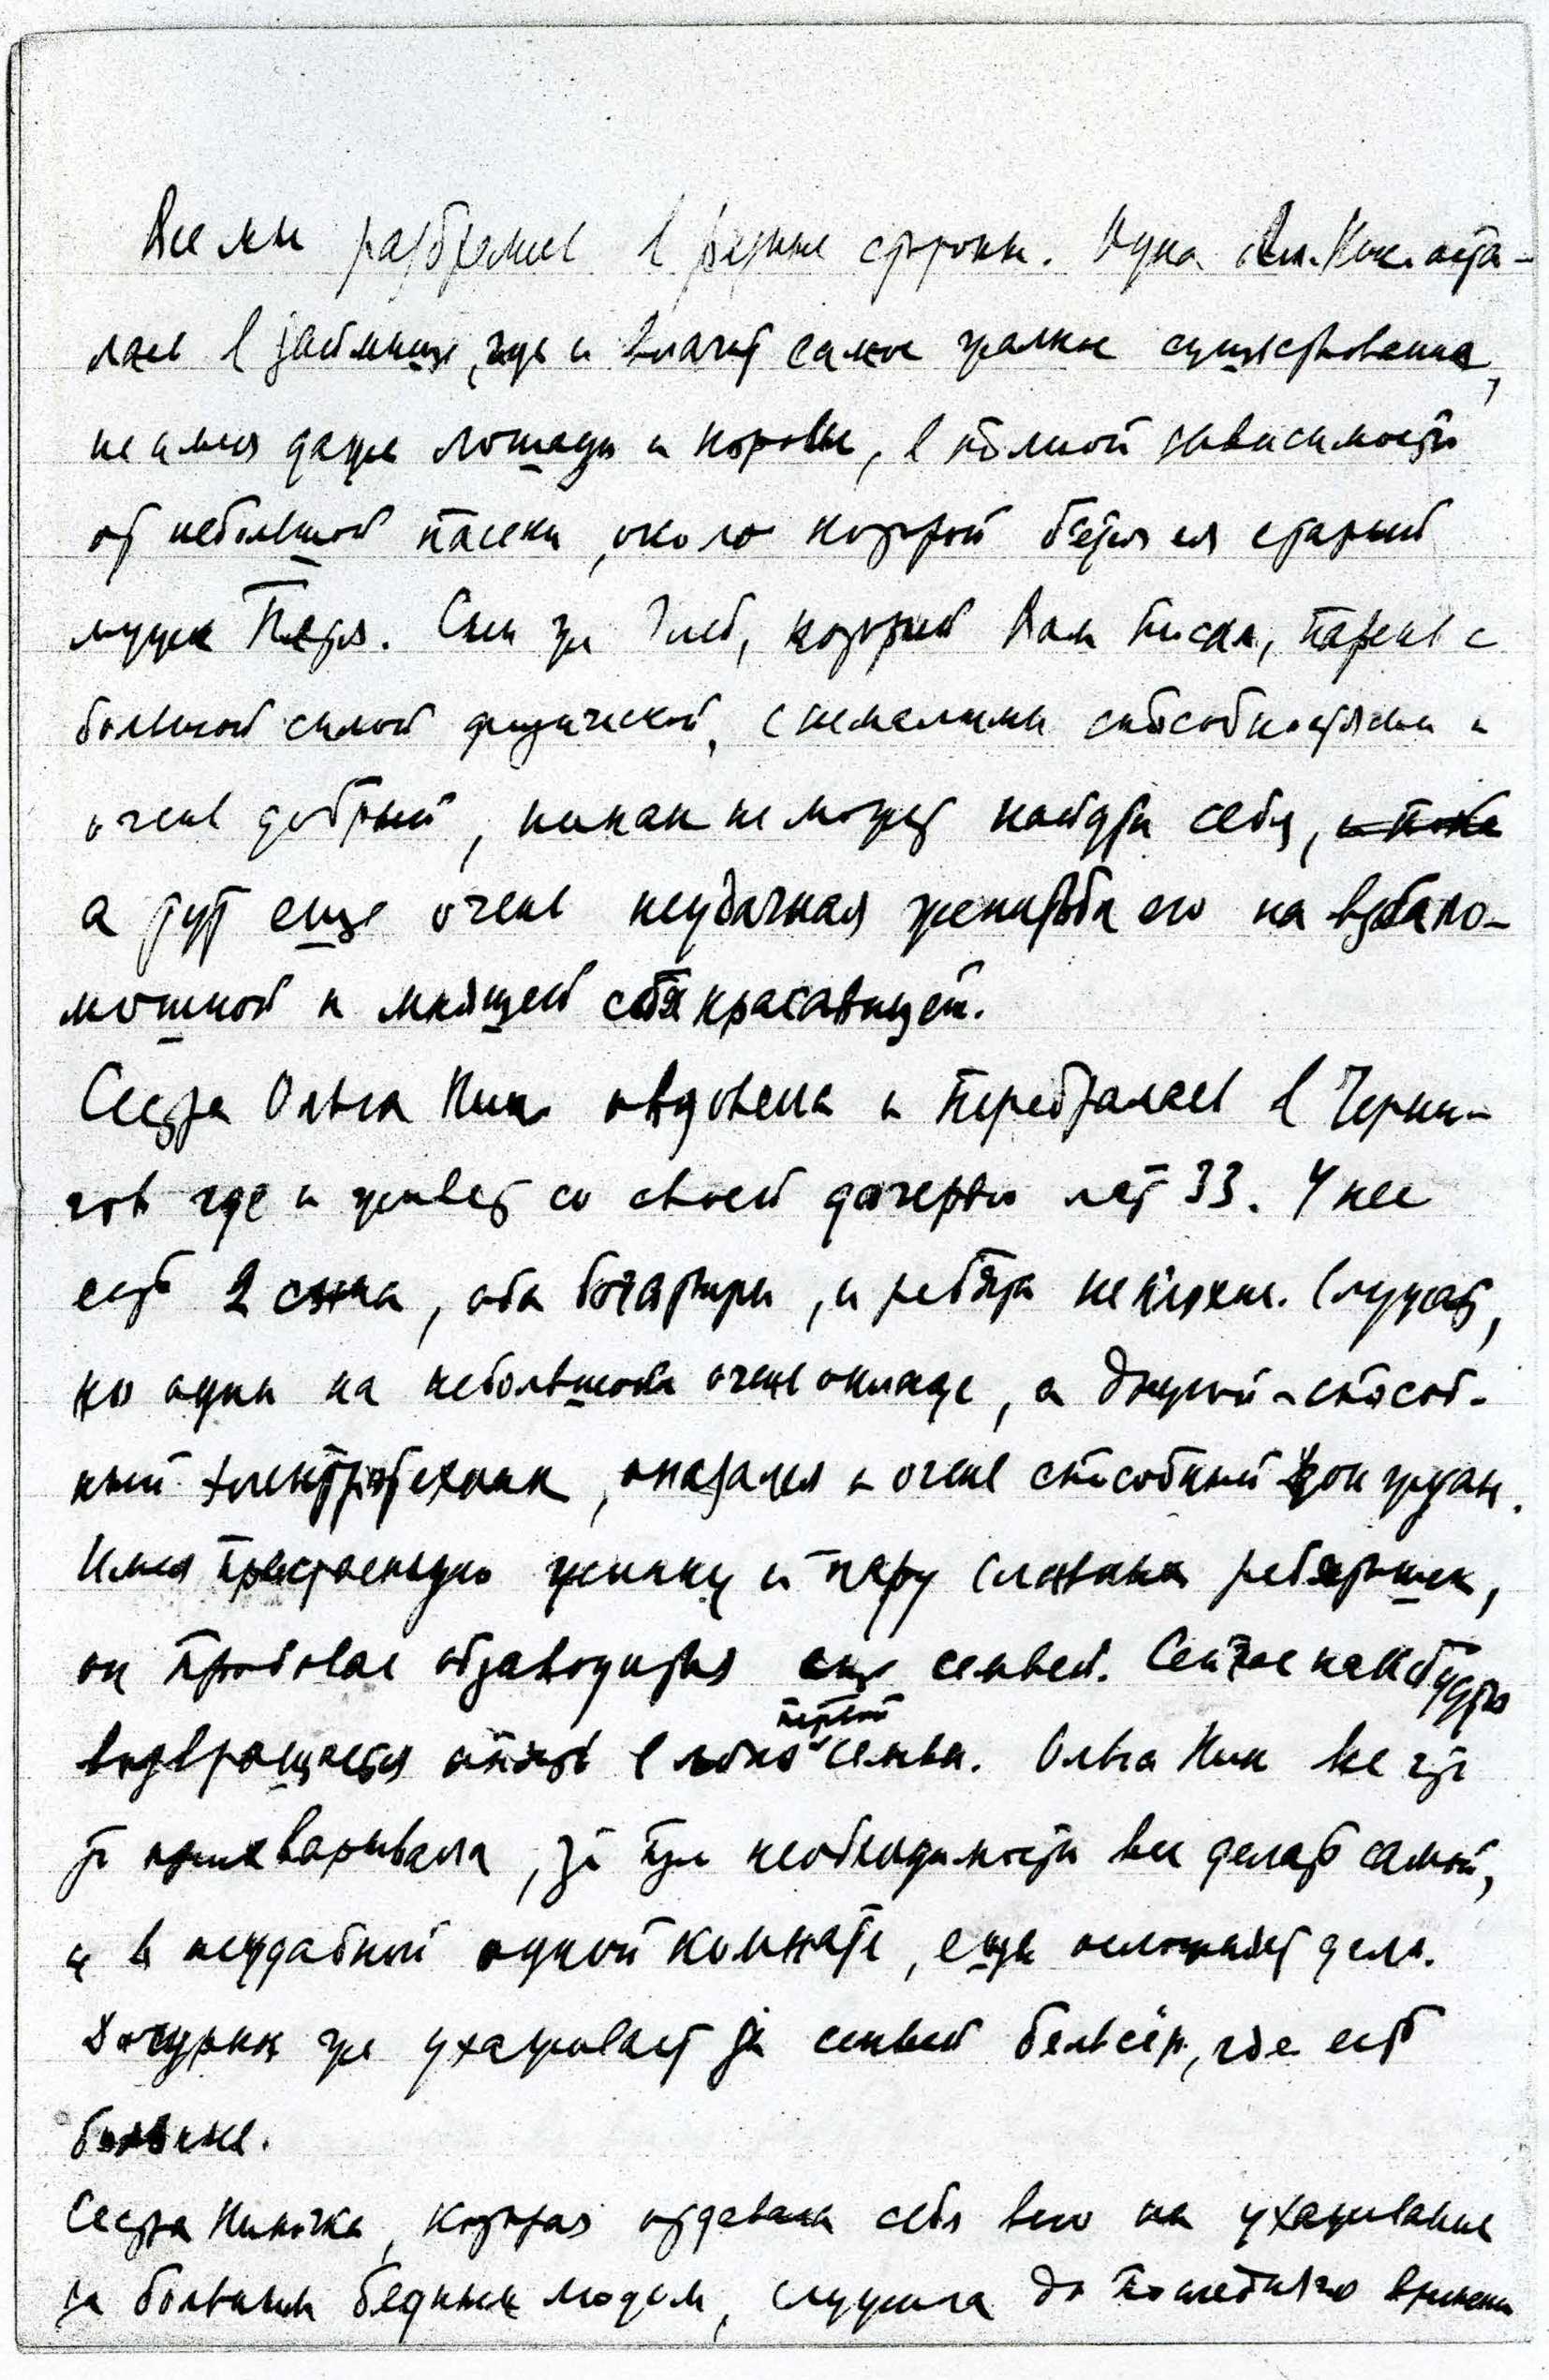 Все мы разбрелись в разные стороны. Одна Ал. Ник. оста-
лась в займище, где и влачит самое жалкое существование,
не имея даже лошади и коровы, в полной зависимости
от небольшой пасеки, около которой бьется ея старый
мужек Петя. Сын же Глеб, который Вам писал, парень с
большой силой физической, с немалыми способностями и
очень добрый, никак не может найти себя,
а тут еще очень неудачная женитьба его на взбало-
мошной и мнящей себя красавицей.
Сестра Ольга Ник. овдовела и перебралась в Черни-
гов где и живет со своей дочерью лет 33. У нее
есть 2 сына, оба богатыри, и ребята неплохие. Служат,
но один на небольшом очень окладе, а другой - способ-
ный электротехник, оказался и очень способный дон жуан.
Имея прекрасную женку и пару славных ребятишек,
он пробовал обзаводиться еще семьей. Сейчас как будто
возвращается опять в лоно первой семьи. Ольга Ник все что
то прихварывала, да при необходимости все делать самой,
и в неудобной одной комнате, еще осложняет дело.
Дочурка же ухаживает за семьей сестер, где есть
больные.
Сестра Ниночка, которая отдавала себя всю на ухаживание
за больным бедным людом, служила до последнего времени